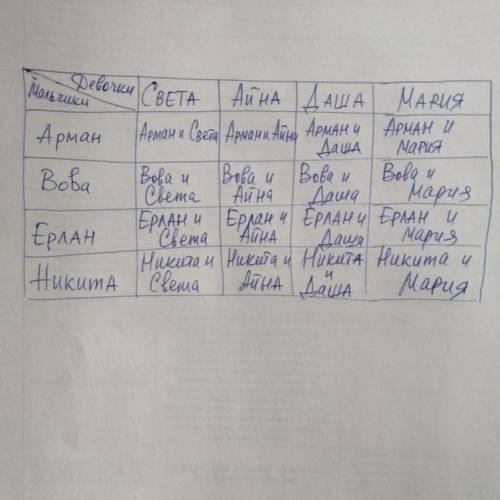 Девочки
Мальчики СВЕТА АЙНА ДАША МАРИЯ
Арман Арман и Света Арман и Айна Арман и Даша Арман и Мария
Вова Вова и Света Вова и Айна Вова и Даша Вова и Мария
Ерлан Ерлан и Света Ерлан и Айна Ерлан и Даша Ерлан и Мария
Никита Никита и Света Никита и Айна Никита и Даша Никита и Мария